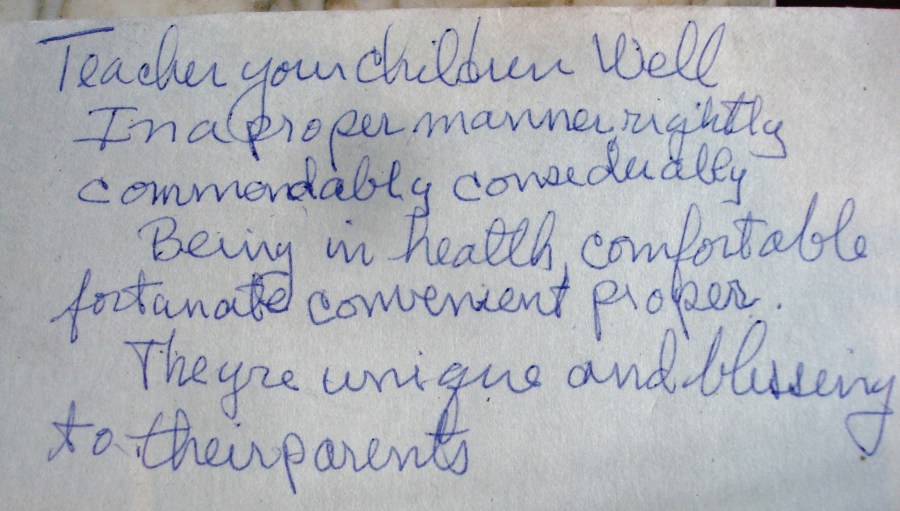 Teacher your children Well
In a proper manner, rightly
commendably consederably
Being in health, comfortable
fortanate convenient, proper.
Theyre unique and blesseing
to their parents